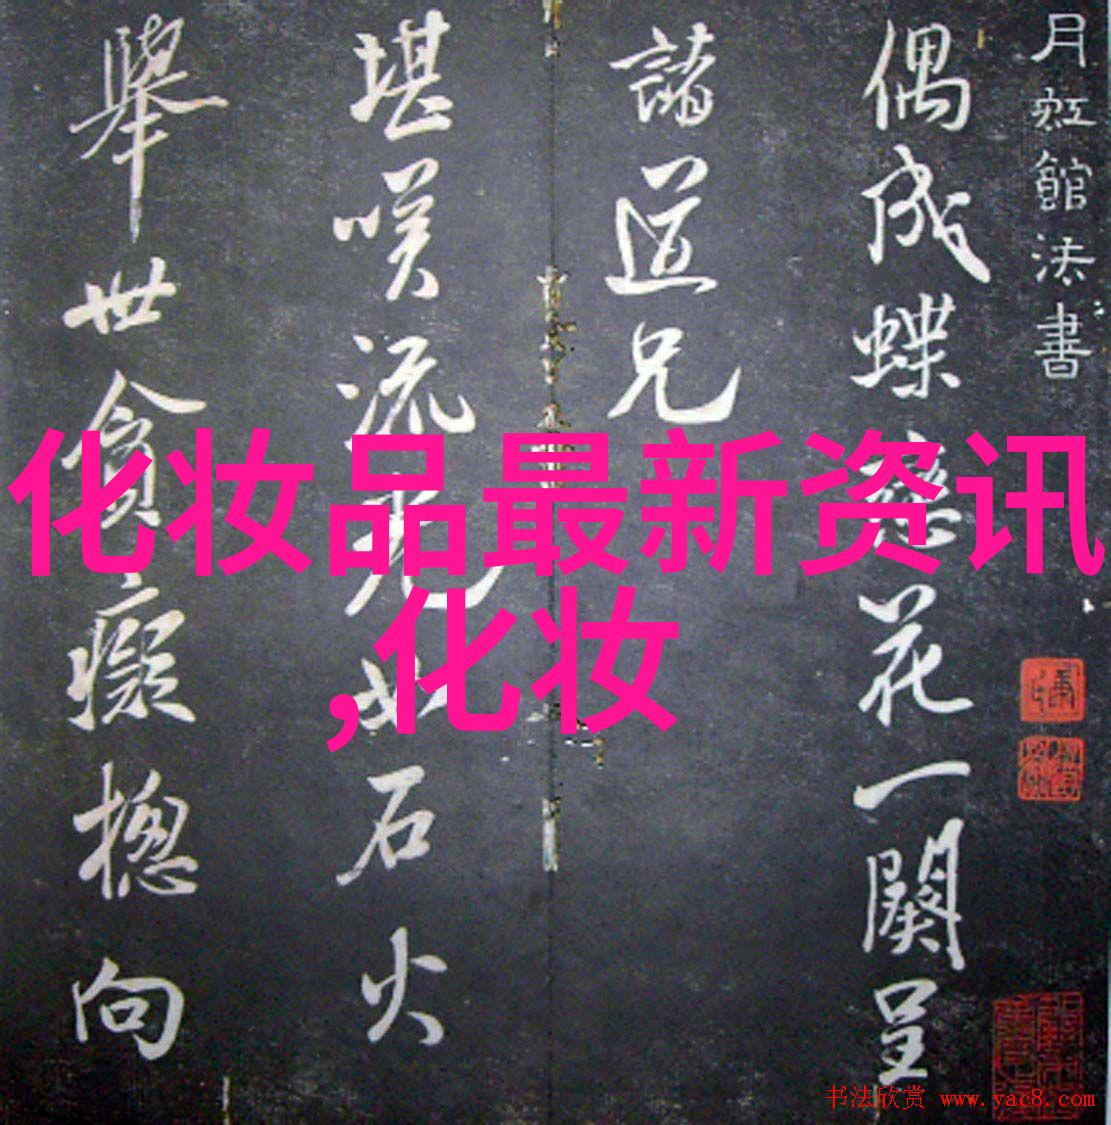 月虹館法書
偶成蝶戀花一闋呈
諸道兄
堪嘆流光如石火
舉世貪癡揔向
化妆品最新资讯
,化妆
书法欣赏 www.yac8.com